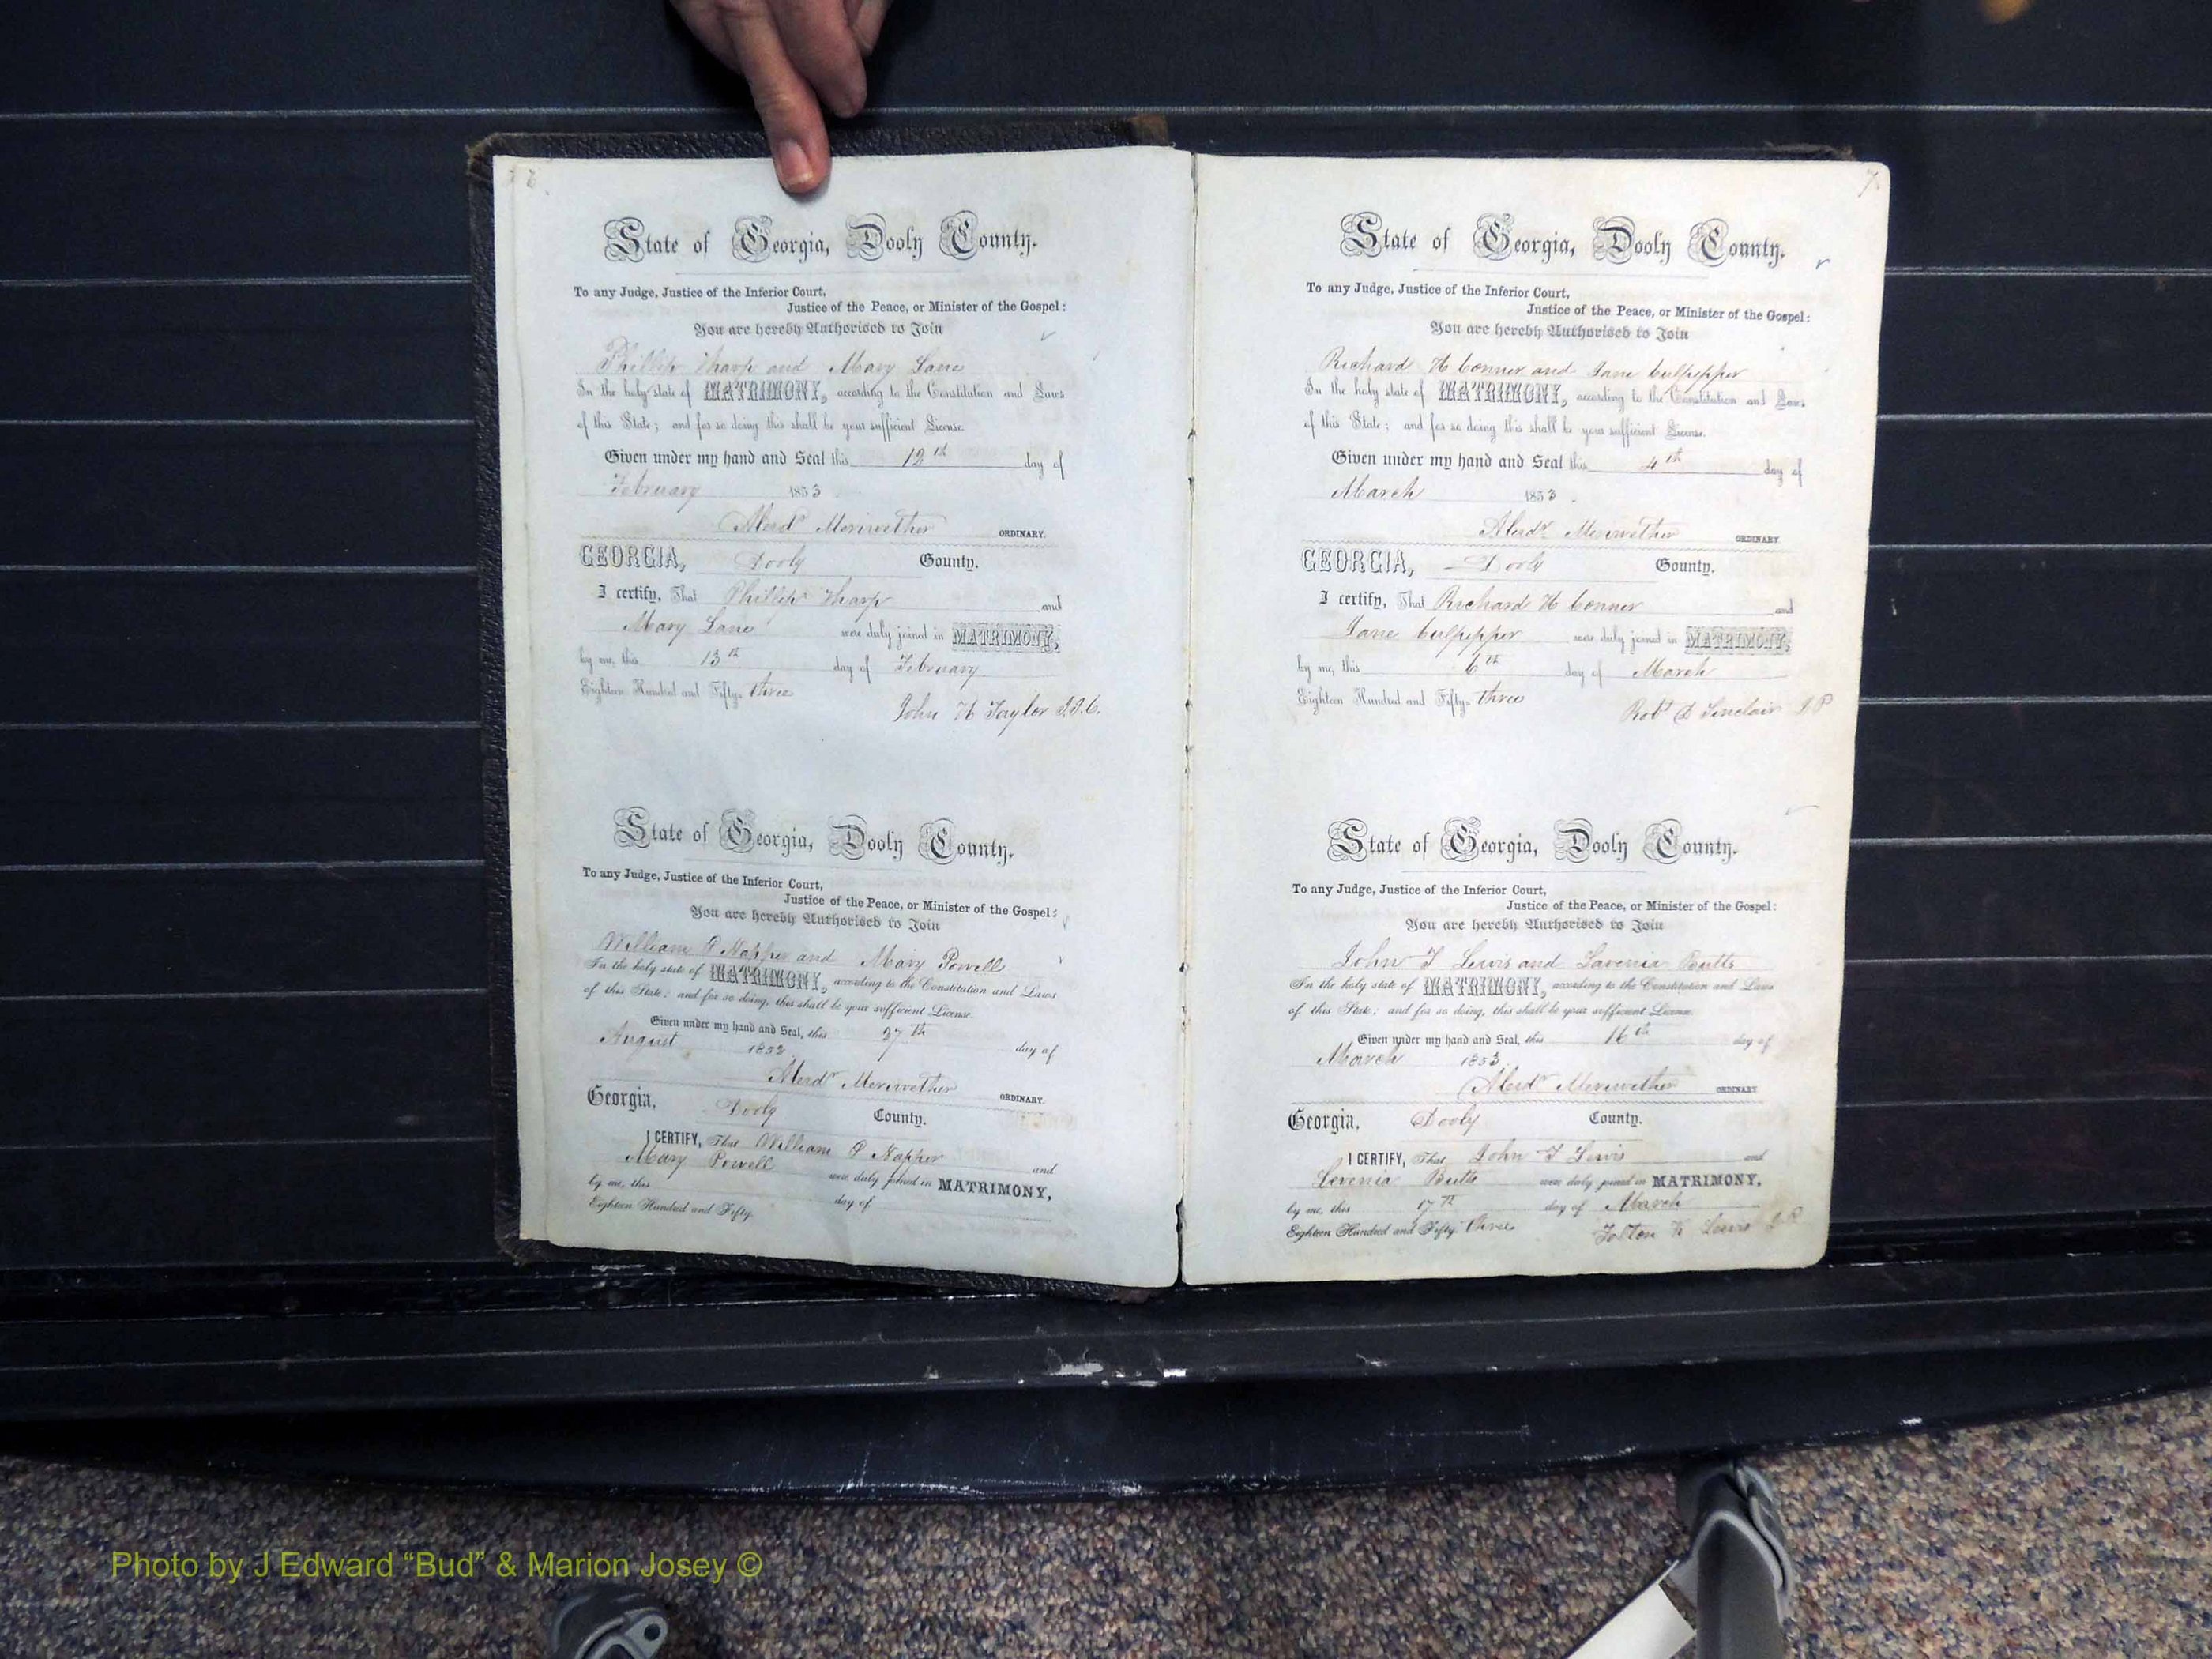 6.
State of Georgia, Dooly County.
To any Judge, Justice of the Inferior Court,
Justice of the Peace, or Minister of the Gospel:
You are hereby Authorised to Join
Phillip Tharp and Mary Lane
In the holy state of MATRIMONY, according to the Constitution and Laws
of this State; and for so doing this shall be your sufficient License.
Given under my hand and Seal this 12th day of
February 1853
Meriwether ORDINARY.
GEORGIA, Dooly County.
I certify, That Phillip Tharp and
Mary Lane were duly joined in MATRIMONY,
by me, this 13th day of February
Eighteen Hundred and Fifty-three
John H Taylor J.I.C.
State of Georgia, Dooly County.
To any Judge, Justice of the Inferior Court,
Justice of the Peace, or Minister of the Gospel:
You are hereby Authorised to Join
William P Napper and Mary Powell
In the holy state of MATRIMONY, according to the Constitution and Laws
of this State; and for so doing, this shall be your sufficient License.
Given under my hand and Seal, this 27th day of
August 1853
Meriwether ORDINARY.
Georgia, Dooly County.
I CERTIFY, That William P Napper and
Mary Powell were duly joined in MATRIMONY,
by me, this day of
Eighteen Hundred and Fifty
7
State of Georgia, Dooly County.
To any Judge, Justice of the Inferior Court,
Justice of the Peace, or Minister of the Gospel:
You are hereby Authorised to Join
Richard H Conner and Jane Culpepper
In the holy state of MATRIMONY, according to the Constitution and Laws
of this State; and for so doing this shall be your sufficient License.
Given under my hand and Seal this 4th day of
March 1853.
Meriwether ORDINARY.
GEORGIA, Dooly County.
I certify, That Richard H Conner and
Jane Culpepper were duly joined in MATRIMONY,
by me, this 6th day of March
Eighteen Hundred and Fifty-three
Robt D Sinclair J.P
State of Georgia, Dooly County.
To any Judge, Justice of the Inferior Court,
Justice of the Peace, or Minister of the Gospel:
You are hereby Authorised to Join
John T Lewis and Lavenia Butts
In the holy state of MATRIMONY, according to the Constitution and Laws
of this State; and for so doing, this shall be your sufficient License.
Given under my hand and Seal, this 16th day of
March 1853.
Meriwether ORDINARY.
Georgia, Dooly County.
I CERTIFY, That John T Lewis and
Levenia Butts were duly joined in MATRIMONY,
by me, this 17th day of March
Eighteen Hundred and Fifty three
Lewis J.P
Photo by J Edward “Bud” & Marion Josey ©